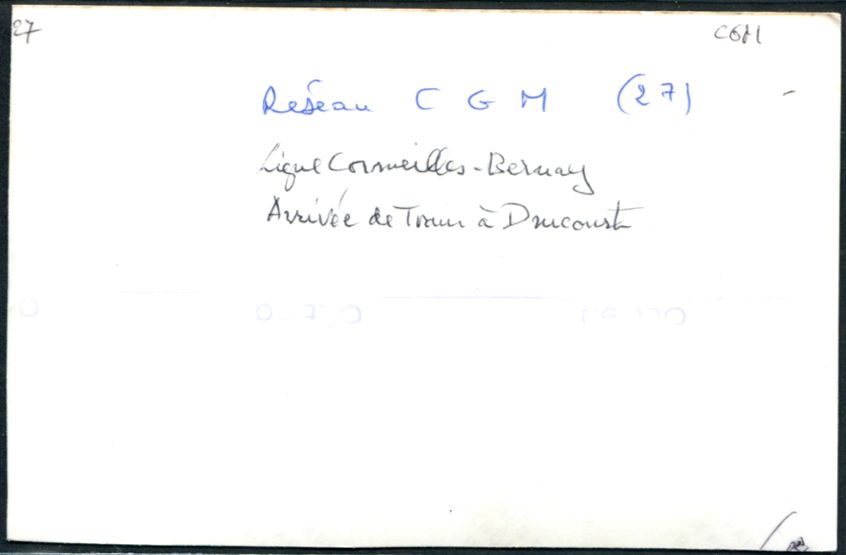 27
CGM
Réseau C G M (27)
Ligne Cormeilles-Bernay
Arrivée de Train à Drucourt